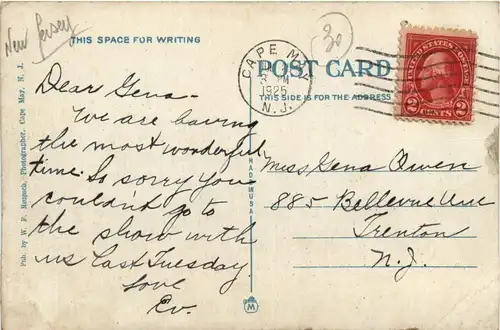 New Jersey
THIS SPACE FOR WRITING
30
CAPE MAY
1925
N.J.
POST CARD
THIS SIDE IS FOR THE ADDRESS
UNITED STATES POSTAGE
2 CENTS 2
Dear Gena-
We are having
the most wonderful
time. So sorry you
couldn't go to
the show with
us last Tuesday
Love
Ev.
Miss Gena Owen
885 Bellevue Ave
Trenton
N.J.
Pub. by W. F. Photographer, Cape May, N. J.
M